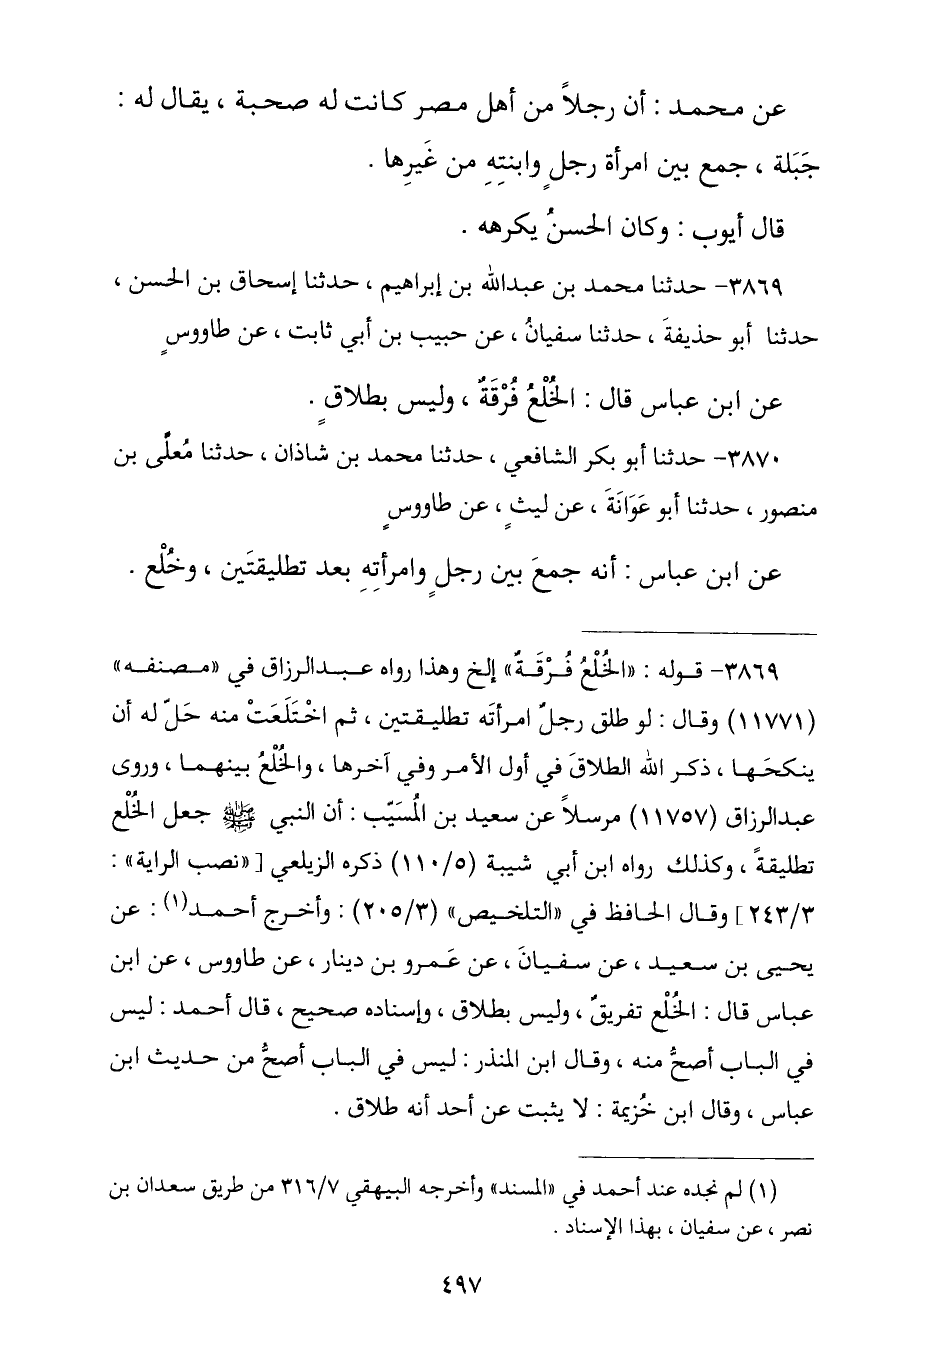 عن محمد : أن رجلاً من أهل مصر كانت له صحبة ، يقال له :
جَبَلة ، جمع بين امرأة رجلٍ وابنتِهِ من غَيرِها .
قال أيوب : وكان الحسنُ يكرهه .
٣٨٦٩- حدثنا محمد بن عبدالله بن إبراهيم ، حدثنا إسحاق بن الحسن ،
حدثنا أبو حذيفةَ ، حدثنا سفيانُ ، عن حبيب بن أبي ثابت ، عن طاووسٍ
عن ابن عباس قال : الخُلْعُ فُرْقَةٌ ، وليس بطلاقٍ .
٣٨٧٠- حدثنا أبو بكر الشافعي ، حدثنا محمد بن شاذان ، حدثنا مُعلَّى بن
منصور ، حدثنا أبو عَوَانَةَ ، عن ليثٍ ، عن طاووسٍ
عن ابن عباس : أنه جمعَ بين رجلٍ وامرأتِهِ بعد تطليقتَين ، وخُلْع .
٣٨٦٩- قوله : «الخُلْعُ فُرْقَةٌ» إلخ وهذا رواه عبدالرزاق في «مصنفه»
(١١٧٧١) وقال : لو طلق رجلٌ امرأتَه تطليقتين ، ثم اخْتَلَعَتْ منه حَلّ له أن
ينكحَها ، ذكر الله الطلاقَ في أول الأمر وفي آخرها ، والخُلْعُ بينهما ، وروى
عبدالرزاق (١١٧٥٧) مرسلاً عن سعيد بن المُسَيّب : أن النبي ﷺ جعل الخُلْع
تطليقةً ، وكذلك رواه ابن أبي شيبة (١١٠/٥) ذكره الزيلعي [«نصب الراية» :
٢٤٣/٣] وقال الحافظ في «التلخيص» (٢٠٥/٣) : وأخرج أحمد(١) : عن
يحيى بن سعيد ، عن سفيانَ ، عن عَمرو بن دينار ، عن طاووس ، عن ابن
عباس قال : الخُلْع تفريقٌ ، وليس بطلاق ، وإسناده صحيح ، قال أحمد : ليس
في الباب أصحُّ منه ، وقال ابن المنذر : ليس في الباب أصحُّ من حديث ابن
عباس ، وقال ابن خُزيمة : لا يثبت عن أحد أنه طلاق .
(١) لم نجده عند أحمد في «المسند» وأخرجه البيهقي ٣١٦/٧ من طريق سعدان بن
نصر ، عن سفيان ، بهذا الإسناد .
٤٩٧